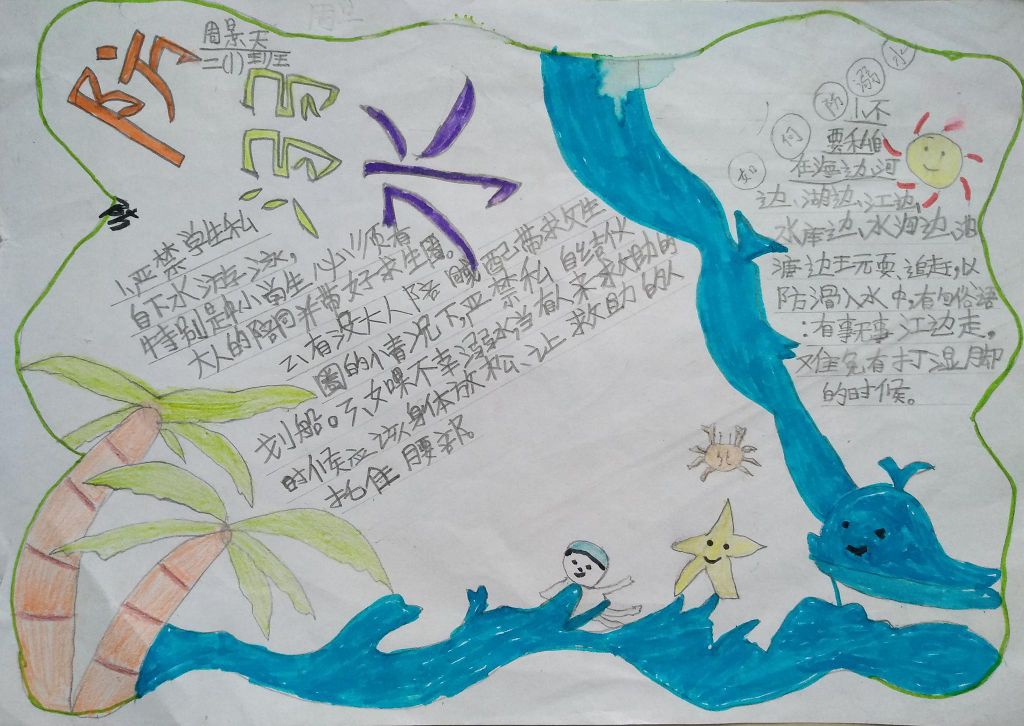 防溺水
周景天
二(1)班
1、严禁学生私
自下水游泳,
特别是中小学生,必须有
大人的陪同并带好求生圈。
2、有没大人陪 配带求救生
圈的小情况下,严禁私自结伙
划船。3、如果不幸溺水当有人来求助的
时候应该身体放松、让救助的人
托住腰部。
如何防溺水
1、不
要私自
在海边、河
边、湖边、江边、
水库边、水沟边、池
塘边玩、追赶,以
防滑入水中,有句俗语
:有事无事江边走,
难免有打湿脚
的时候。